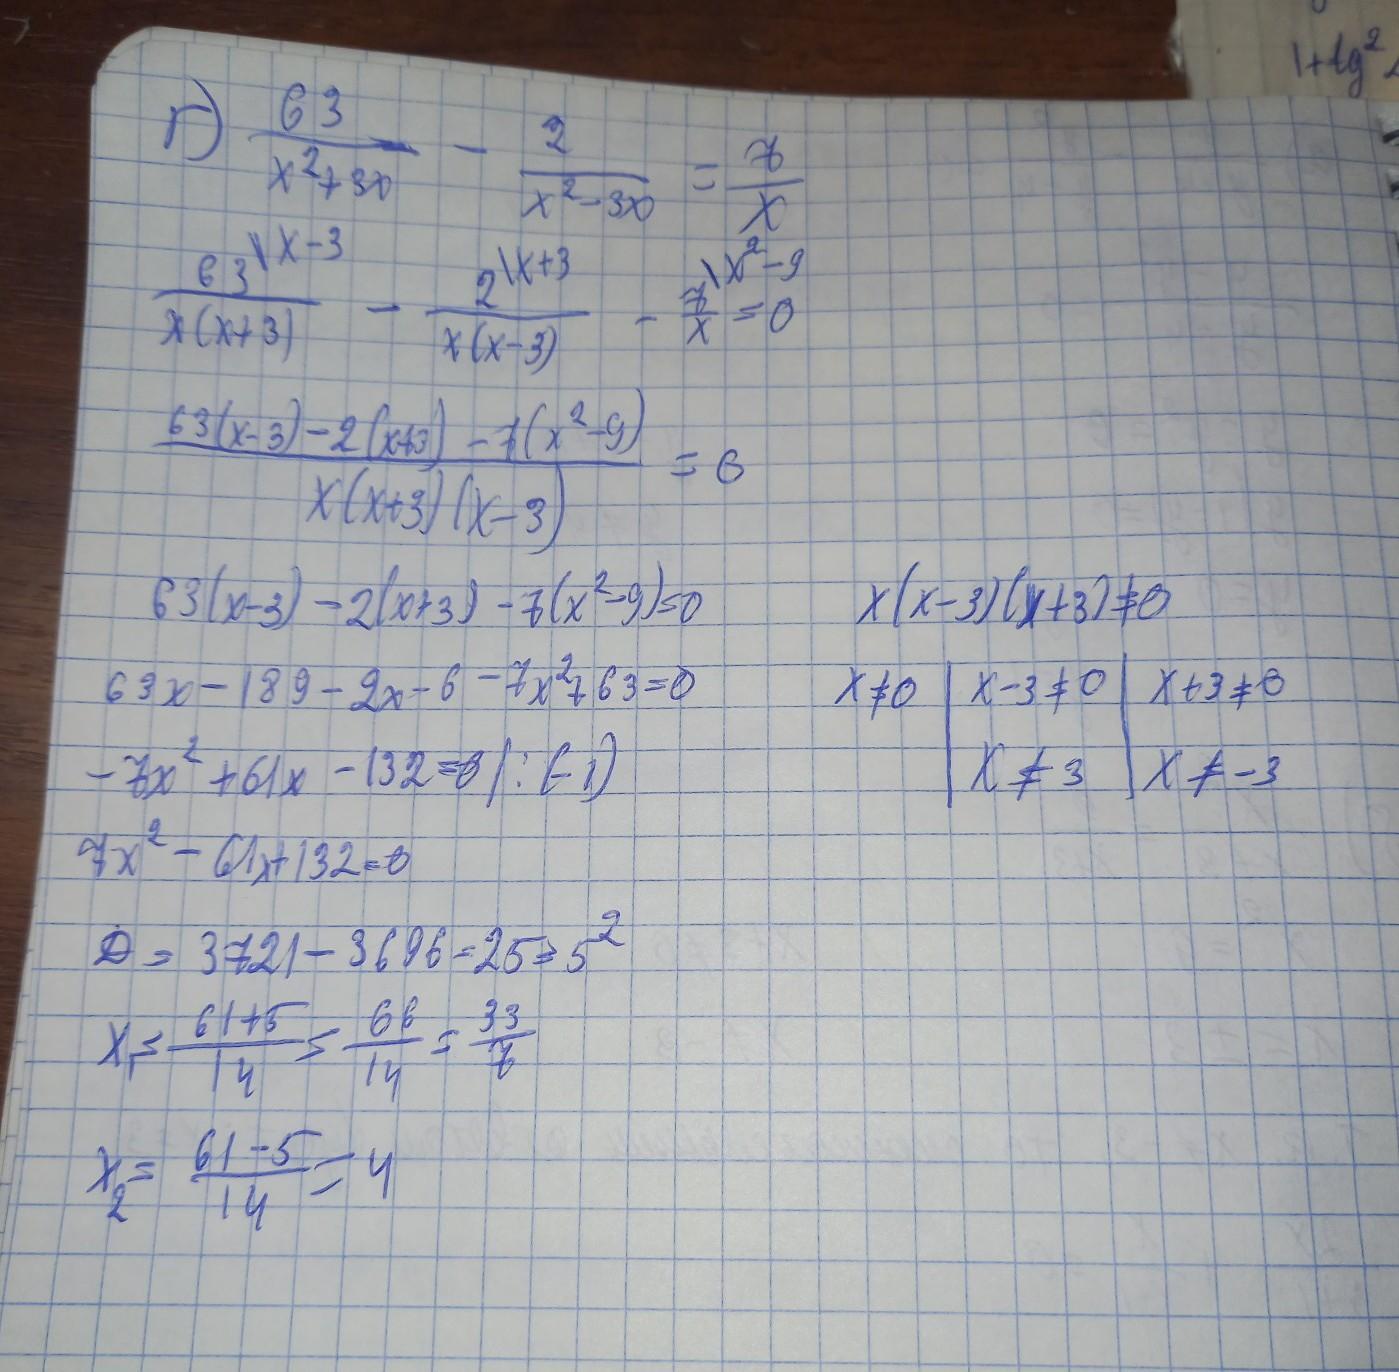 1+tg²
г) 63/(x²+3x) - 2/(x²-3x) = 7/x
63\x-3/(x(x+3)) - 2\x+3/(x(x-3)) - 7\x²-9/x = 0
(63(x-3)-2(x+3)-7(x²-9))/(x(x+3)(x-3)) = 0
63(x-3)-2(x+3)-7(x²-9)=0 x(x-3)(x+3)≠0
63x-189-2x-6-7x²+63=0 x≠0 | x-3≠0 | x+3≠0
-7x²+61x-132=0 |:(-1) x≠3 | x≠-3
7x²-61x+132=0
D=3721-3696=25=5²
x₁=(61+5)/14=66/14=33/7
x₂=(61-5)/14=4